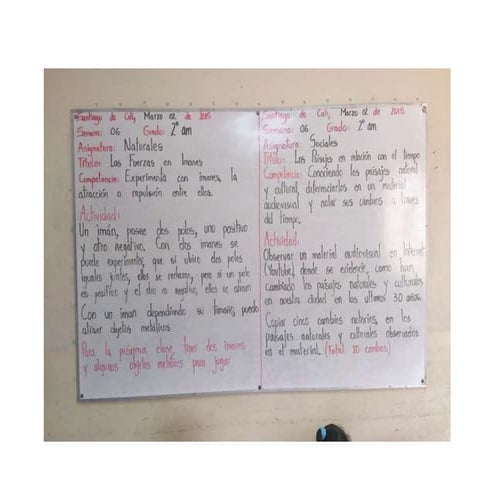 Santiago de Cali, Marzo 02 de 2015
Semana: 06 Grado: 2° am
Asignatura: Naturales
Título: Las Fuerzas en Imanes
Competencia: Experimenta con imanes, la
atracción o repulsión entre ellos.
Actividad:
Un imán, posee dos polos, uno positivo
y otro negativo. Con dos imanes se
puede experimentar, que si ubico dos polos
iguales juntos, ellos se rechazan, pero si un polo
es positivo y el otro es negativo, ellos se atraen
Con un iman dependiendo su tamaño, puedo
atraer objetos metálicos
Para la próxima clase, traer dos imanes
y algunos objetos metálicos para jugar
Santiago de Cali, Marzo 02 de 2015
Semana: 06 Grado: 2° am
Asignatura: Sociales
Título: Los Paisajes en relación con el tiempo
Competencia: Conociendo los paisajes natural
y cultural, diferenciarlos en un material
audiovisual y notar sus cambios a traves
del tiempo.
Actividad:
Observar un material audiovisual en internet
(Youtube) donde se evidencie, como han
cambiado los paisajes naturales y culturales
en nuestra ciudad en los últimos 30 años.
Copiar cinco cambios notorios, en los
paisajes naturales y culturales observados
en el material. (Total 10 cambios)